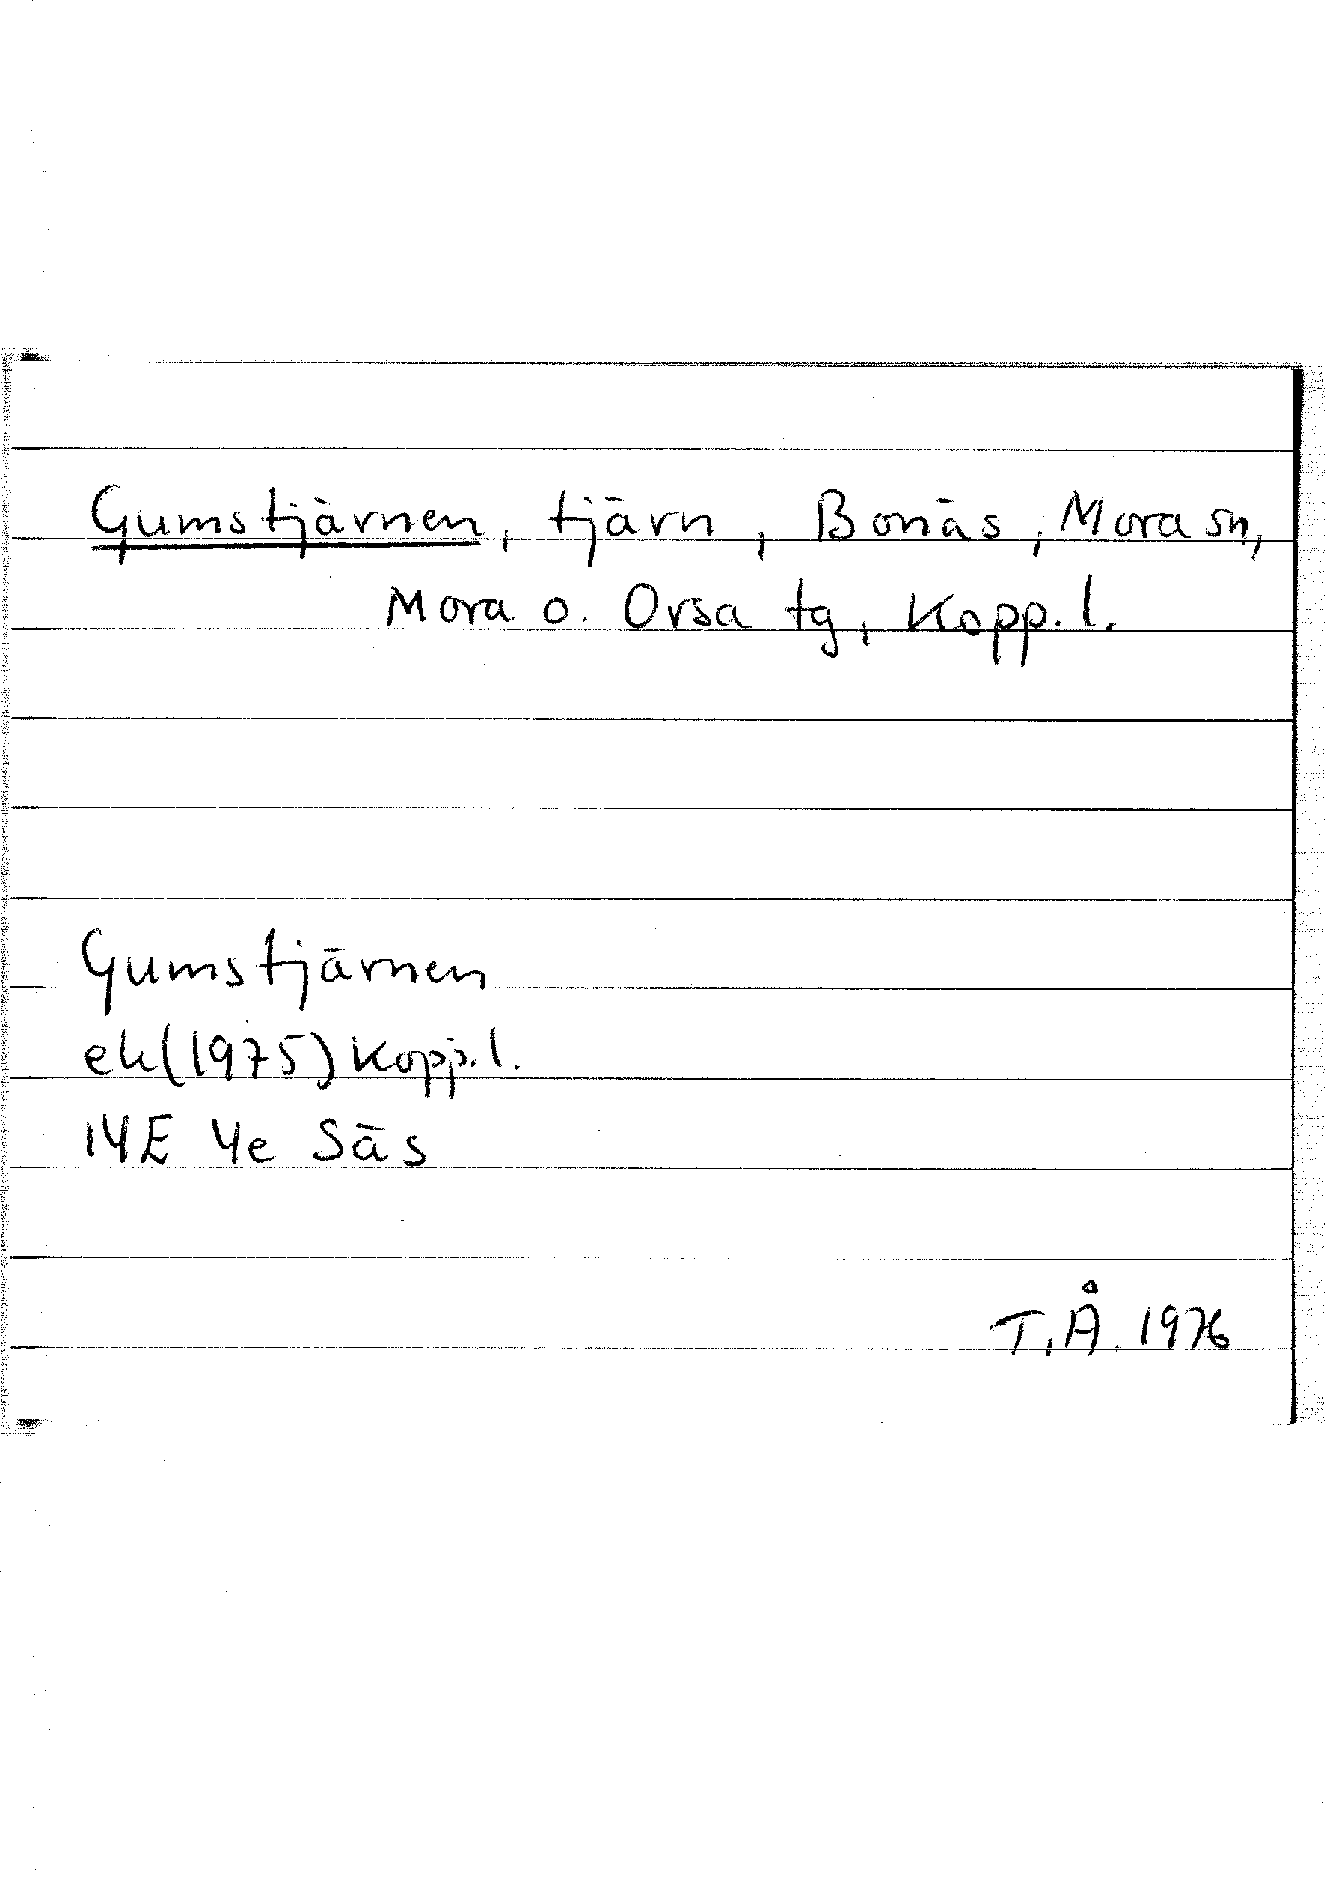 Gumstjärnen, tjärn, Bonäs, Mora sn,
Mora o. Orsa tg, Kopp. l.
Gumstjärnen
ek(1975) Kopp. l.
14E 4e Säs
T.Å. 1976